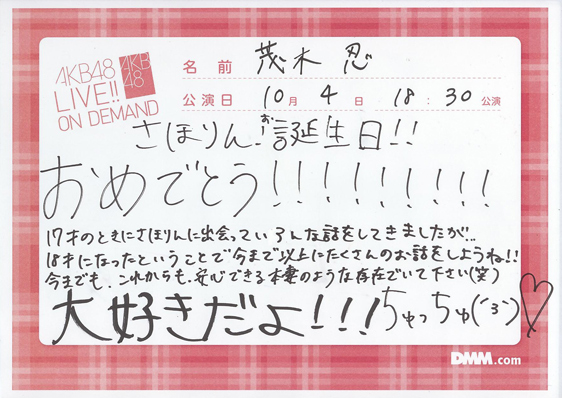 AKB48
LIVE!!
ON DEMAND
AKB
48
名前 茂木 忍
公演日 10月 4日 18:30公演
さほりん、お誕生日!!
おめでとう!!!!!!!!!
17才のときにさほりんに出会っていろんな話をしてきましたが...
18才になったということで今まで以上にたくさんのお話をしようね!!
今までも、これからも、安心できる本妻のような存在でいて下さい(笑)
大好きだよ!!!ちゅっちゅ(´3`)♡
DMM.com